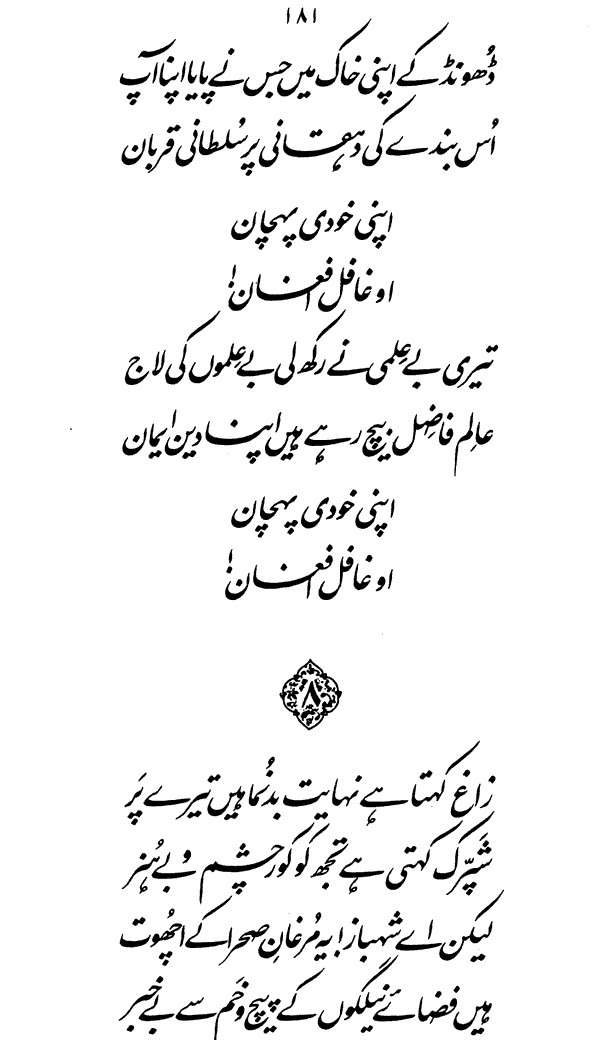 ۱۸۱
ڈُھونڈ کے اپنی خاک میں جس نے پایا اپنا آپ
اُس بندے کی دہقانی پر سُلطانی قربان
اپنی خودی پہچان
او غافل افغان!
تیری بے عِلمی نے رکھ لی بے عِلموں کی لاج
عالِم فاضِل بیچ رہے ہیں اپنا دین ایمان
اپنی خودی پہچان
او غافل افغان!
۸
زاغ کہتا ہے نہایت بدنُما ہیں تیرے پَر
شَپّرک کہتی ہے تجھ کو کورچشم و بے ہُنر
لیکن اے شہباز! یہ مُرغانِ صحرا کے اچھُوت
ہیں فضائے نیلگوں کے پیچ و خَم سے بے خبر